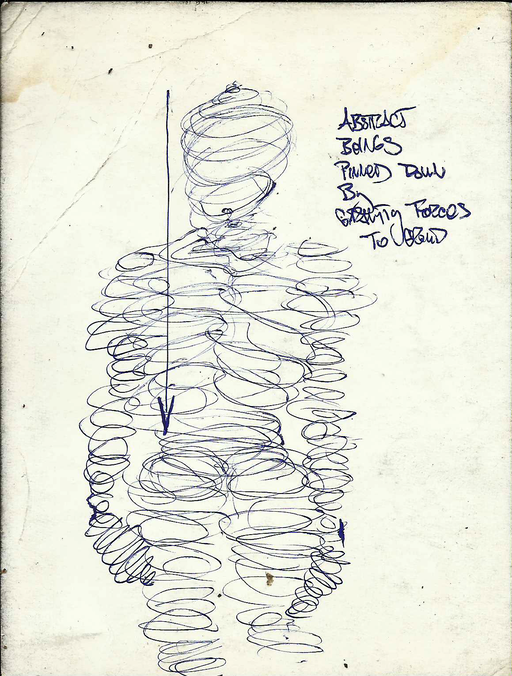 ABSTRACT
BEINGS
PINNED DOWN
By
GRAVITY FORCES
TO